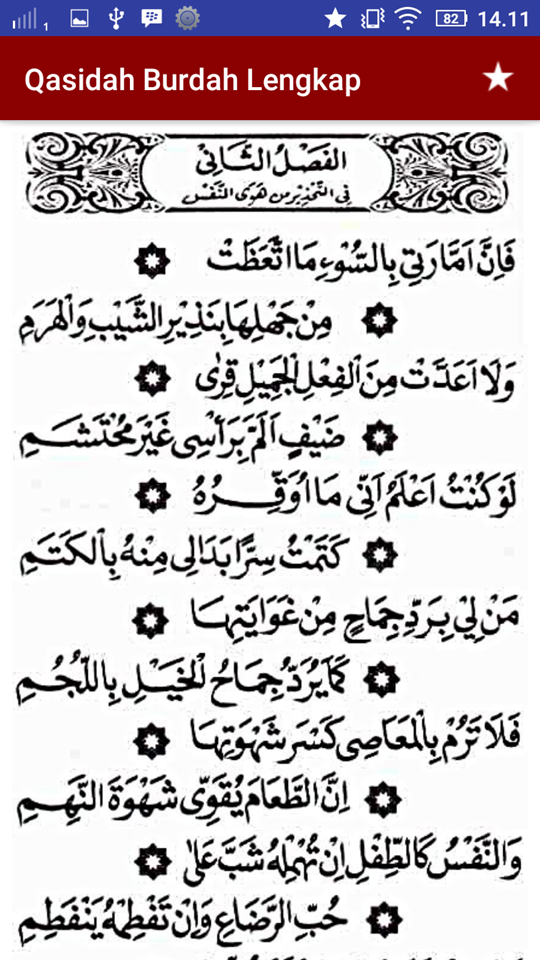 1 82 14.11
Qasidah Burdah Lengkap
الفَصْلُ الثَّانِيْ
فِي التَّحْذِيْرِ مِنْ هَوَى النَّفْسِ
فَاِنَّ اَمَّارَتِيْ بِالسُّوْءِ مَا اتَّعَظَتْ
مِنْ جَهْلِهَا بِنَذِيْرِ الشَّيْبِ وَالْهَرَمِ
وَلَا اَعَدَّتْ مِنَ الْفِعْلِ الْجَمِيْلِ قِرٰى
ضَيْفٍ اَلَمَّ بِرَأْسِى غَيْرَ مُحْتَشَمِ
لَوْ كُنْتُ اَعْلَمُ اَنِّى مَا اُوَقِّرُهُ
كَتَمْتُ سِرًّا بَدَالِى مِنْهُ بِالْكَتَمِ
مَنْ لِيْ بِرَدِّ جِمَاحٍ مِنْ غَوَايَتِهَا
كَمَا يُرَدُّ جِمَاحُ الْخَيْلِ بِاللُّجُمِ
فَلَا تَرُمْ بِالْمَعَاصِى كَسْرَ شَهْوَتِهَا
اِنَّ الطَّعَامَ يُقَوِّى شَهْوَةَ النَّهِمِ
وَالنَّفْسُ كَالطِّفْلِ اِنْ تُهْمِلْهُ شَبَّ عَلٰى
حُبِّ الرَّضَاعِ وَاِنْ تَفْطِمْهُ يَنْفَطِمِ